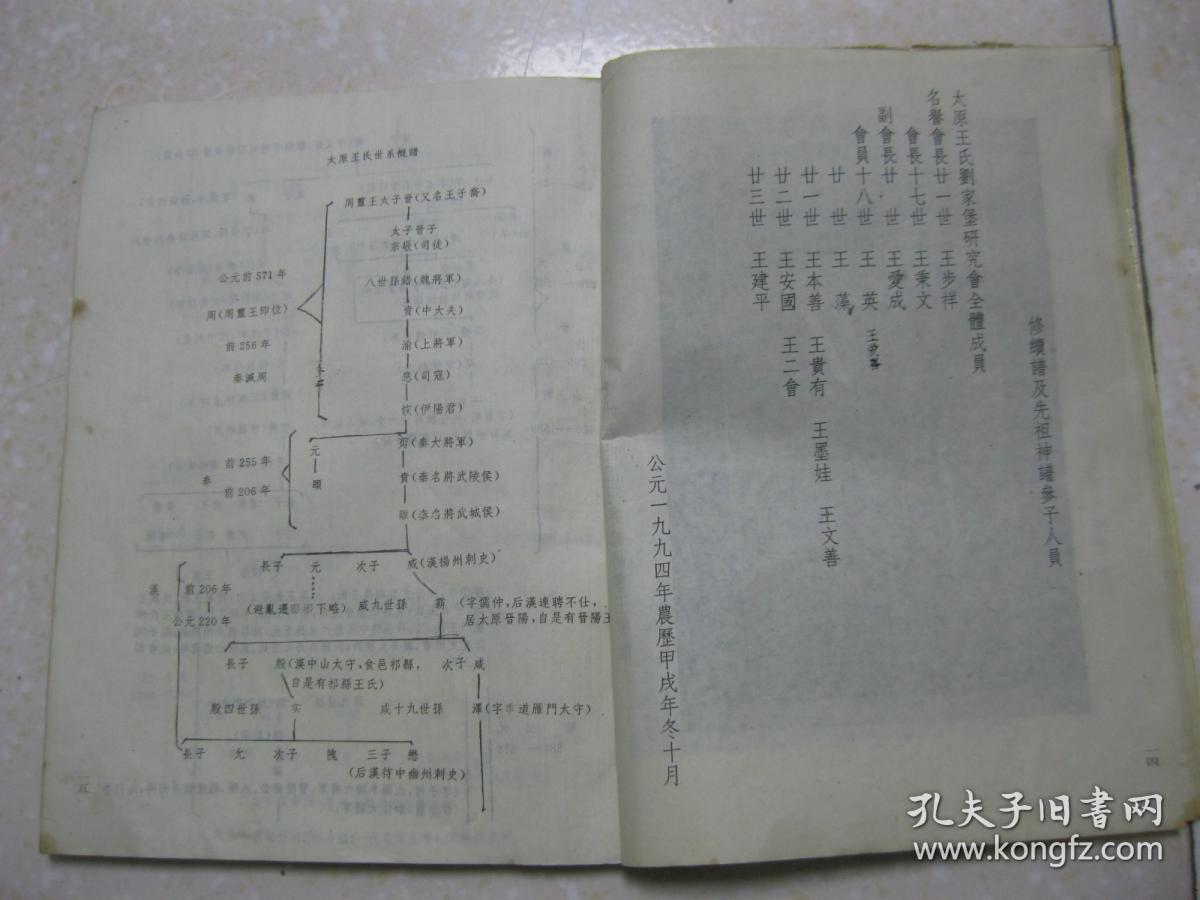 修續譜及先祖神譜參予人員
太原王氏劉家堡研究會全體成員
名譽會長廿一世 王步祥
會長十七世 王秉文
副會長廿 世 王愛成
會員十八世 王 英
廿 世 王 藻
廿一世 王本善 王貴有 王墨娃 王文善
廿二世 王安國 王二會
廿三世 王建平
公元一九九四年農歷甲戌年冬十月
一四
太原王氏世系概譜
周靈王太子晉(又名王子喬)
太子晉子
宗敬(司徒)
公元前571年
八世孫錯(魏將軍)
周(周靈王即位)
賁(中大夫)
前256年
渝(上將軍)
秦滅周
息(司寇)
恢(伊陽君)
元
剪(秦大將軍)
前255年
秦
頤
賁(秦名將武陵侯)
前206年
離(秦名將武城侯)
長子 元 次子 威(漢揚州刺史)
漢 前206年
公元220年
(避亂遷 下略) 威九世孫 霸 (字儒仲,后漢連聘不仕,
居太原晉陽,自是有晉陽王
長子 殷(漢中山太守,食邑祁縣, 次子 咸
自是有祁縣王氏)
殷四世孫 实 咸十九世孫 澤(字季道雁門太守)
長子 允 次子 隗 三子 懋
(后漢侍中幽州刺史)
一五
孔夫子旧书网
www.kongfz.com